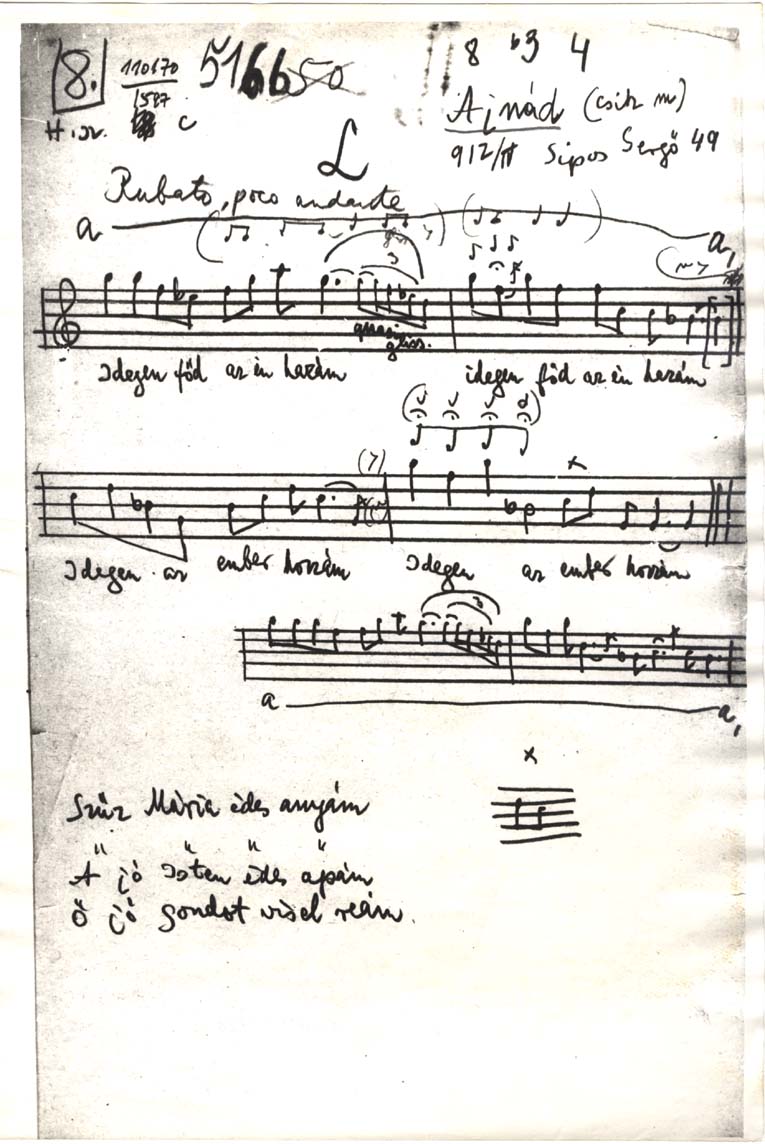 8. 110170 51660 8 b3 4
1587
H.sz. C Ajnád (Csík m)
L 912/II Sipos Gergő 49
Rubato, poco andante
a a,
3
quasi gliss.
Idegen föd az én hazám idegen föd az én hazám
(7) x
Idegen az ember hozzám Idegen az ember hozzám
3
a a,
x
Szűz Mária édes anyám
A jó Isten édes apám
Ő jó gondot visel reám.